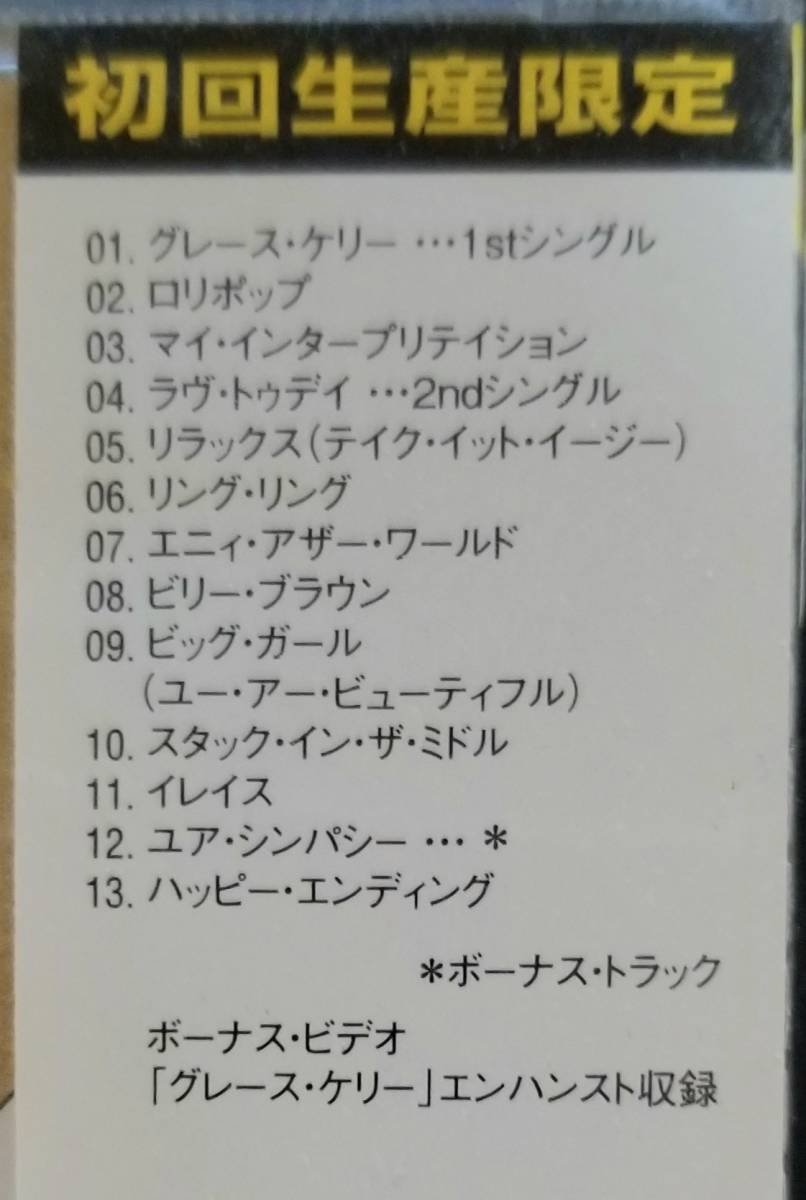 初回生産限定
01. グレース・ケリー …1stシングル
02. ロリポップ
03. マイ・インタープリテイション
04. ラヴ・トゥデイ …2ndシングル
05. リラックス(テイク・イット・イージー)
06. リング・リング
07. エニィ・アザー・ワールド
08. ビリー・ブラウン
09. ビッグ・ガール
(ユー・アー・ビューティフル)
10. スタック・イン・ザ・ミドル
11. イレイス
12. ユア・シンパシー … *
13. ハッピー・エンディング
*ボーナス・トラック
ボーナス・ビデオ
「グレース・ケリー」エンハンスト収録